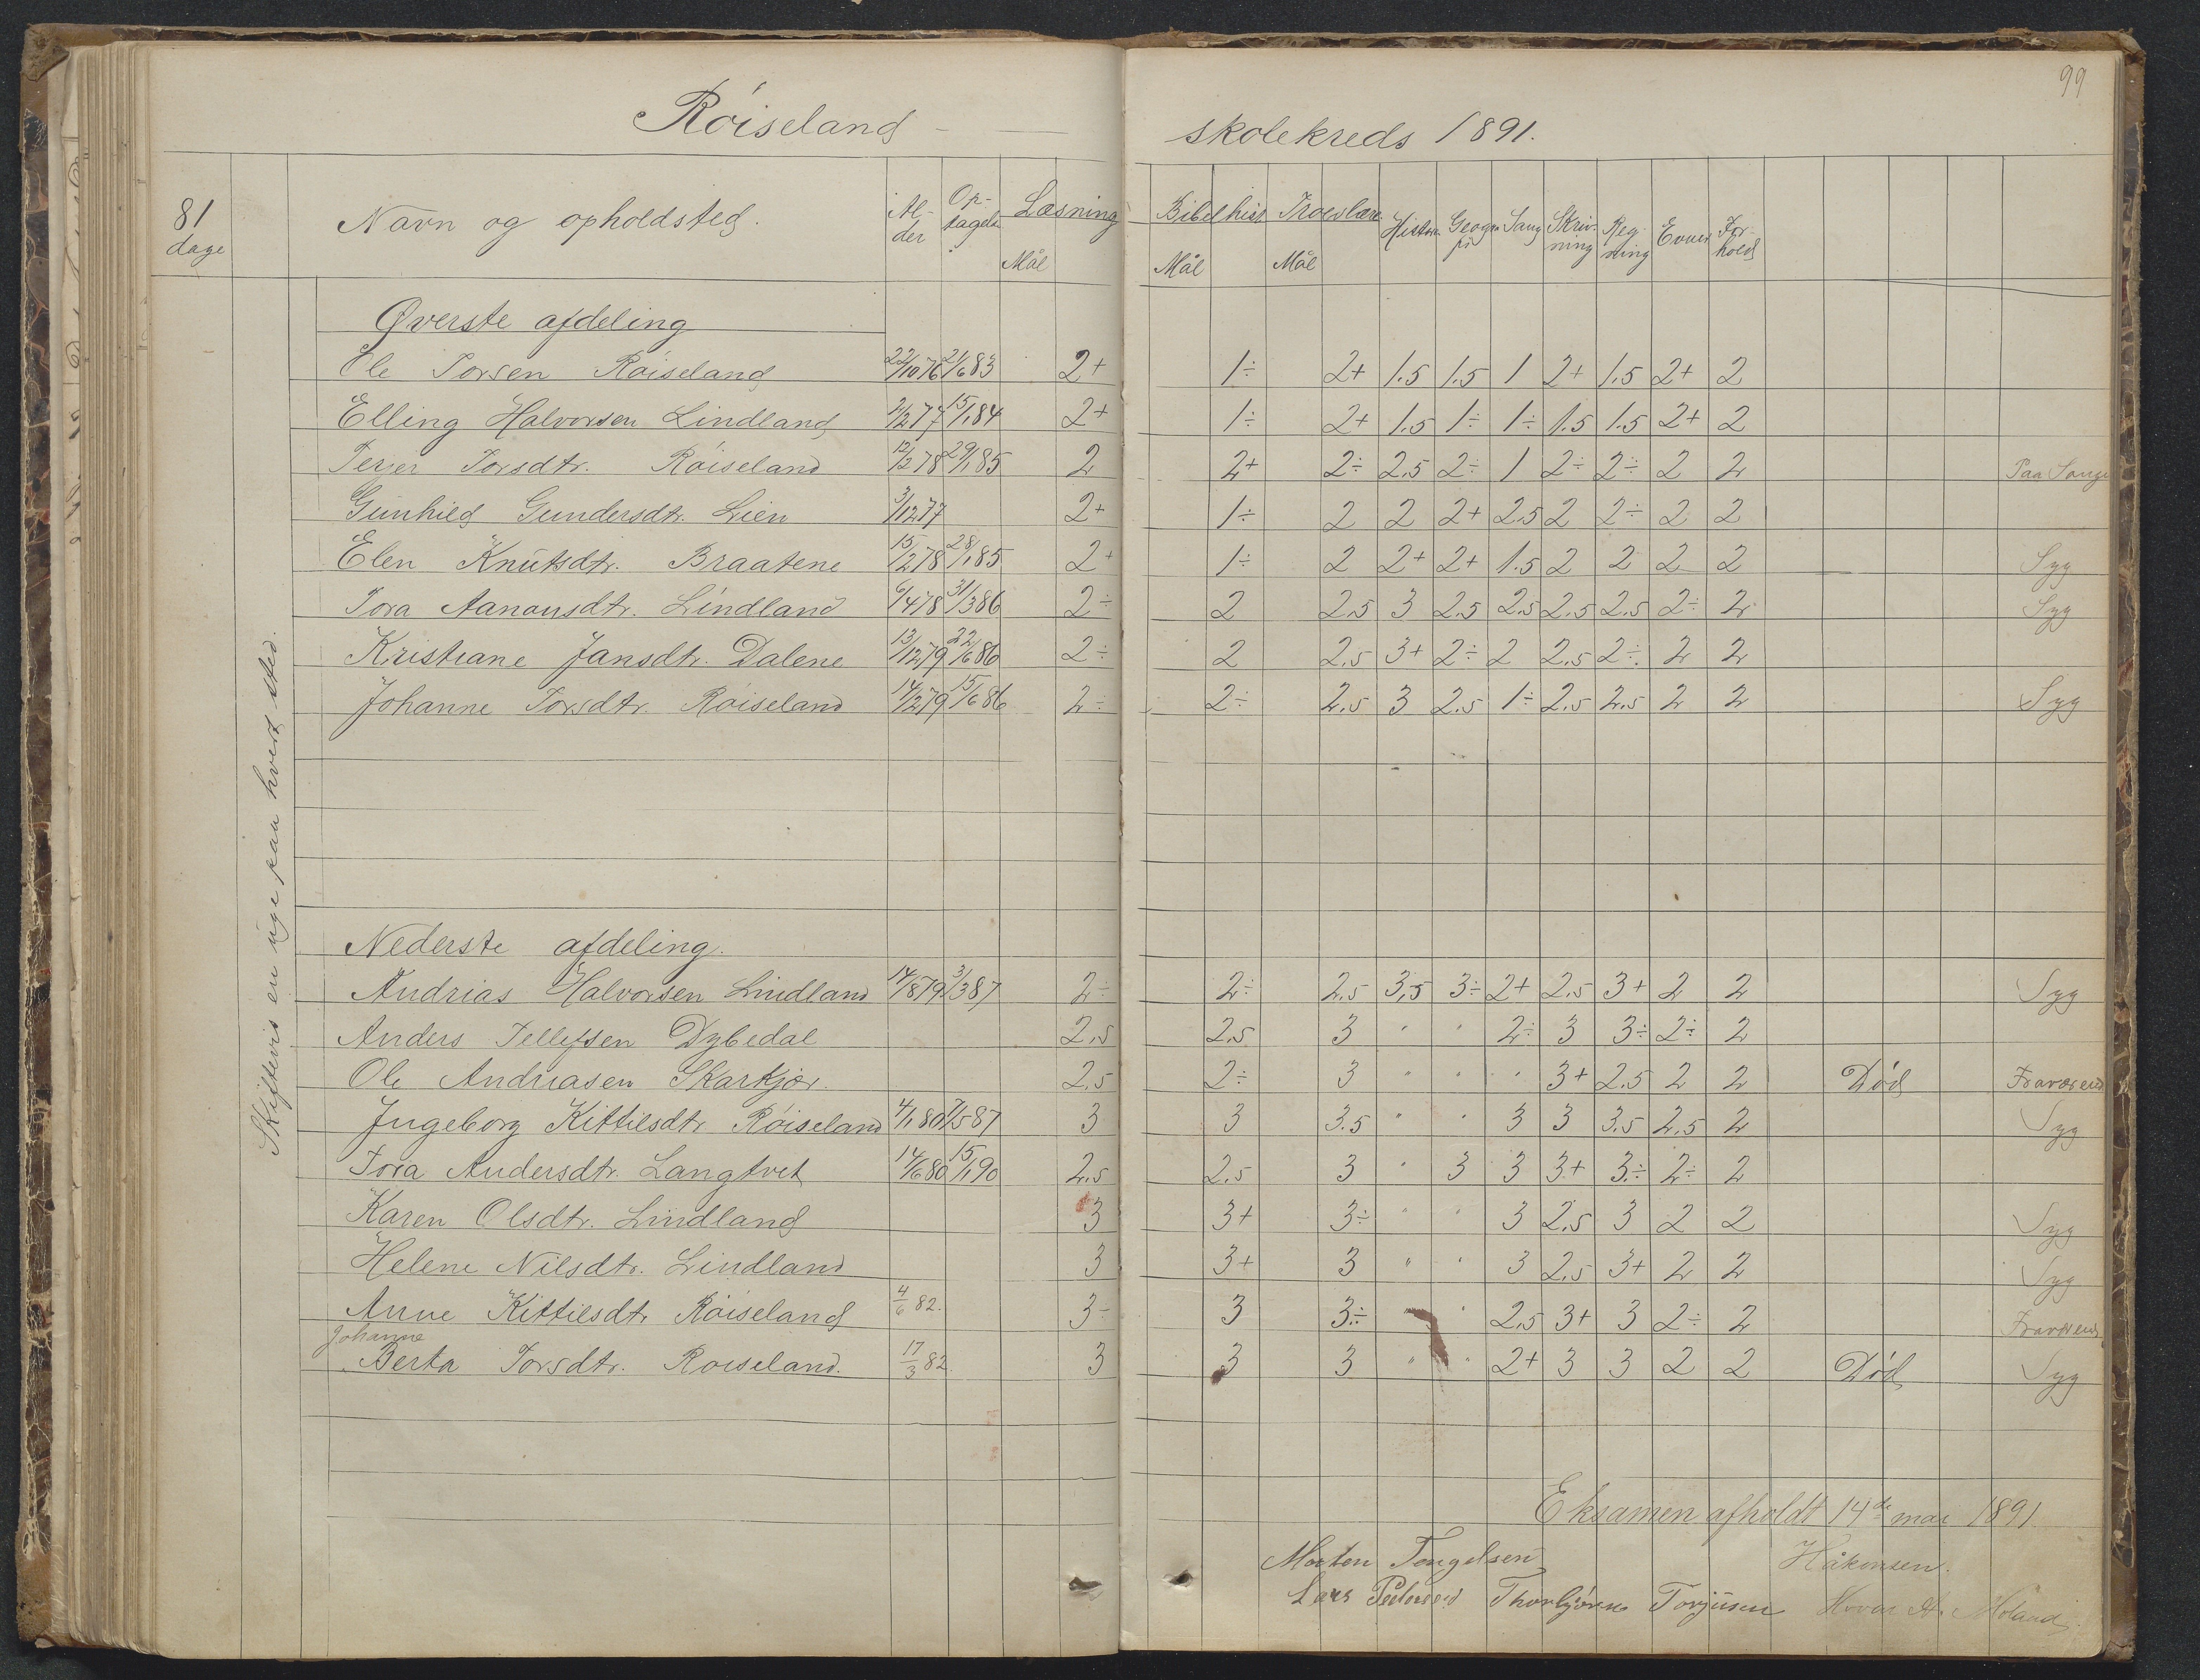 99
Röiseland - skolekreds 1891.
81 dage
Navn og opholdsted.
Al-der Op-tagels Læsning Bibelhist Troeslære Histori Geogra-fi Sang Skriv-ning Reg-ning Evner For-hold
Mål Mål Mål
Skiftevis en uge paa hvert sted.
Øverste afdeling
Ole Torsen Röiseland 22/10 76 21/6 83 2+ 1÷ 2+ 1.5 1.5 1 2+ 1.5 2+ 2
Elling Halvorsen Lindland 2/2 77 15/1 84 2+ 1÷ 2+ 1.5 1÷ 1÷ 1.5 1.5 2+ 2
Terjer Torsdtr. Röiseland 12/2 78 29/1 85 2 2+ 2÷ 2.5 2÷ 1 2÷ 2÷ 2 2 Paa Sange
Gunhild Gundersdtr. Lien 3/12 77 2+ 1÷ 2 2 2+ 2.5 2 2÷ 2 2
Elen Knutsdtr. Braatene 15/12 78 28/1 85 2+ 1÷ 2 2+ 2+ 1.5 2 2 2 2 Syg
Tora Aanonsdtr. Lindland 6/4 78 31/3 86 2÷ 2 2.5 3 2.5 2.5 2.5 2.5 2÷ 2 Syg
Kristiane Jansdtr. Dalene 13/12 79 22/6 86 2÷ 2 2.5 3+ 2÷ 2 2.5 2÷ 2 2
Johanne Torsdtr. Röiseland 14/2 79 15/6 86 2÷ 2÷ 2.5 3 2.5 1÷ 2.5 2.5 2 2 Syg
Nederste afdeling.
Andrias Halvorsen Lindland 14/8 79 3/3 87 2÷ 2÷ 2.5 3,5 3÷ 2+ 2.5 3+ 2 2 Syg
Anders Tellefsen Dybedal 2.5 2.5 3 " " 2÷ 3 3÷ 2÷ 2
Ole Andriasen Skarkjær. 2.5 2÷ 3 " " " 3+ 2.5 2 2 Död Fraværend
Ingeborg Kittilsdtr Röiseland 4/1 80 7/5 87 3 3 3.5 " " 3 3 3.5 2.5 2 Syg
Tora Andersdtr. Langtvet 14/6 80 15/1 90 2.5 2.5 3 " 3 3 3+ 3÷ 2÷ 2
Karen Olsdtr. Lindland 3 3+ 3÷ " " 3 2.5 3 2 2 Syg
Helene Nilsdtr. Lindland 3 3+ 3 " " 3 2.5 3+ 2 2 Syg
Anne Kittilsdtr Röiseland 4/6 82. 3÷ 3 3÷ " " 2.5 3+ 3 2÷ 2 Fraværend
Johanne
Berta Torsdtr. Roiseland. 17/3 82 3 3 3 " " 2+ 3 3 2 2 Död Syg
Eksamen afholdt 14de mai 1891
Morten Tengelsen Håkonsen.
Lars Pedersen Thorbjörn Torjusen Hovar A. Moland